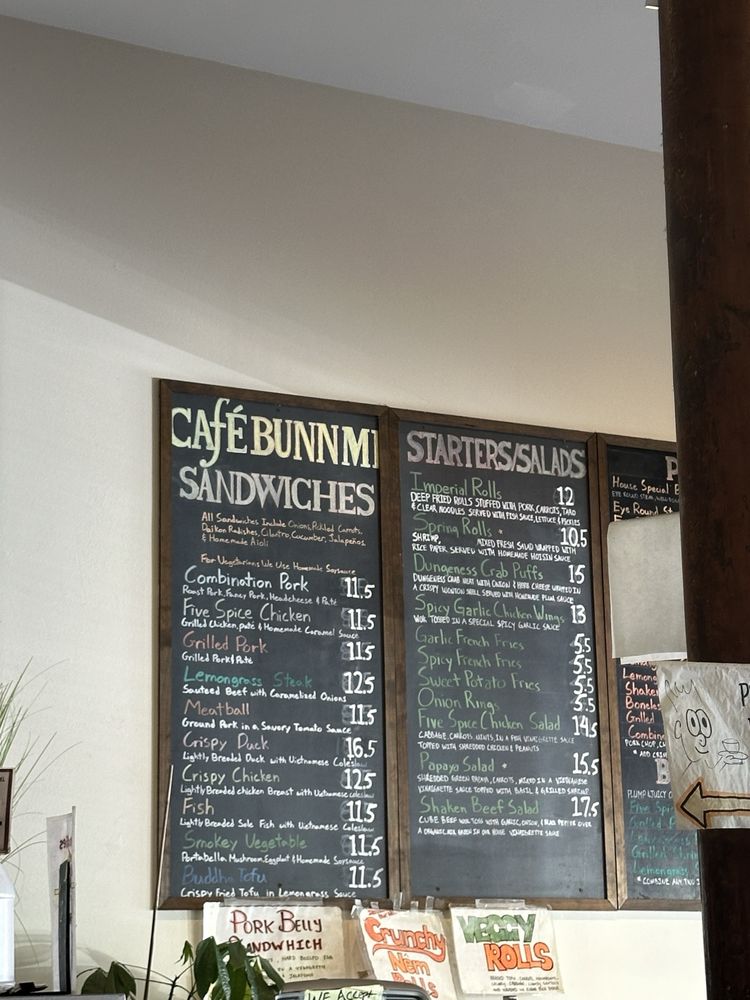 CAFÉ BUNN MI
SANDWICHES
All Sandwiches Include Onions, Pickled Carrots,
Daikon Radishes, Cilantro, Cucumber, Jalapeños
& Homemade Aioli
For Vegetarians We Use Homemade Soysauce
Combination Pork 11.5
Roast Pork, Fancy Pork, Headcheese & Paté
Five Spice Chicken 11.5
Grilled Chicken, paté & Homemade Caramel Sauce
Grilled Pork 11.5
Grilled Pork & Pate
Lemongrass Steak 12.5
Sauteed Beef with Caramelized Onions
Meatball 11.5
Ground Pork in a Savory Tomato Sauce
Crispy Duck 16.5
Lightly Breaded Duck with Vietnamese Coleslaw
Crispy Chicken 12.5
Lightly Breaded chicken Breast with Vietnamese coleslaw
Fish 11.5
Lightly Breaded Sole Fish with Vietnamese Coleslaw
Smokey Vegetable 11.5
Portabella Mushroom, Eggplant & Homemade Soysauce
Buddha Tofu 11.5
Crispy Fried Tofu in Lemongrass Sauce
STARTERS/SALADS
Imperial Rolls 12
DEEP FRIED ROLLS STUFFED WITH PORK, CARROTS, TARO
& CLEAR NOODLES. SERVED WITH FISH SAUCE, LETTUCE & PICKLES
Spring Rolls * 10.5
SHRIMP, MIXED FRESH SALAD WRAPPED WITH
RICE PAPER SERVED WITH HOMEMADE HOISIN SAUCE
Dungeness Crab Puffs 15
DUNGENESS CRAB MEAT WITH ONION & HERB CHEESE WRAPPED IN
A CRISPY WONTON SHELL SERVED WITH HOMEMADE PLUM SAUCE
Spicy Garlic Chicken Wings 13
WOK TOSSED IN A SPECIAL SPICY GARLIC SAUCE
Garlic French Fries 5.5
Spicy French Fries 5.5
Sweet Potato Fries 5.5
Onion Rings 5.5
Five Spice Chicken Salad 14.5
CABBAGE, CARROTS, MINTS, IN A FISH VINAIGRETTE SAUCE
TOPPED WITH SHREDDED CHICKEN & PEANUTS
Papaya Salad * 15.5
SHREDDED GREEN PAPAYA, CARROTS, MIXED IN A VIETNAMESE
VINAIGRETTE SAUCE TOPPED WITH BASIL & GRILLED SHRIMP
Shaken Beef Salad 17.5
CUBE BEEF WOK TOSS WITH GARLIC, ONION, & BLACK PEPPER OVER
A ORGANIC MIX GREEN IN OUR HOUSE VINAIGRETTE SAUCE
P
House Special B
Eye Round St
Lemong
Shaken
Boneless
Grilled
Combin
PORK CHOP,
B
PLUMP, JUICY
Five Spice
Grilled P
Grilled Shri
PORK BELLY
SANDWHICH
Crunchy
Nem
Rolls
VEGGY
ROLLS
WE ACCEPT